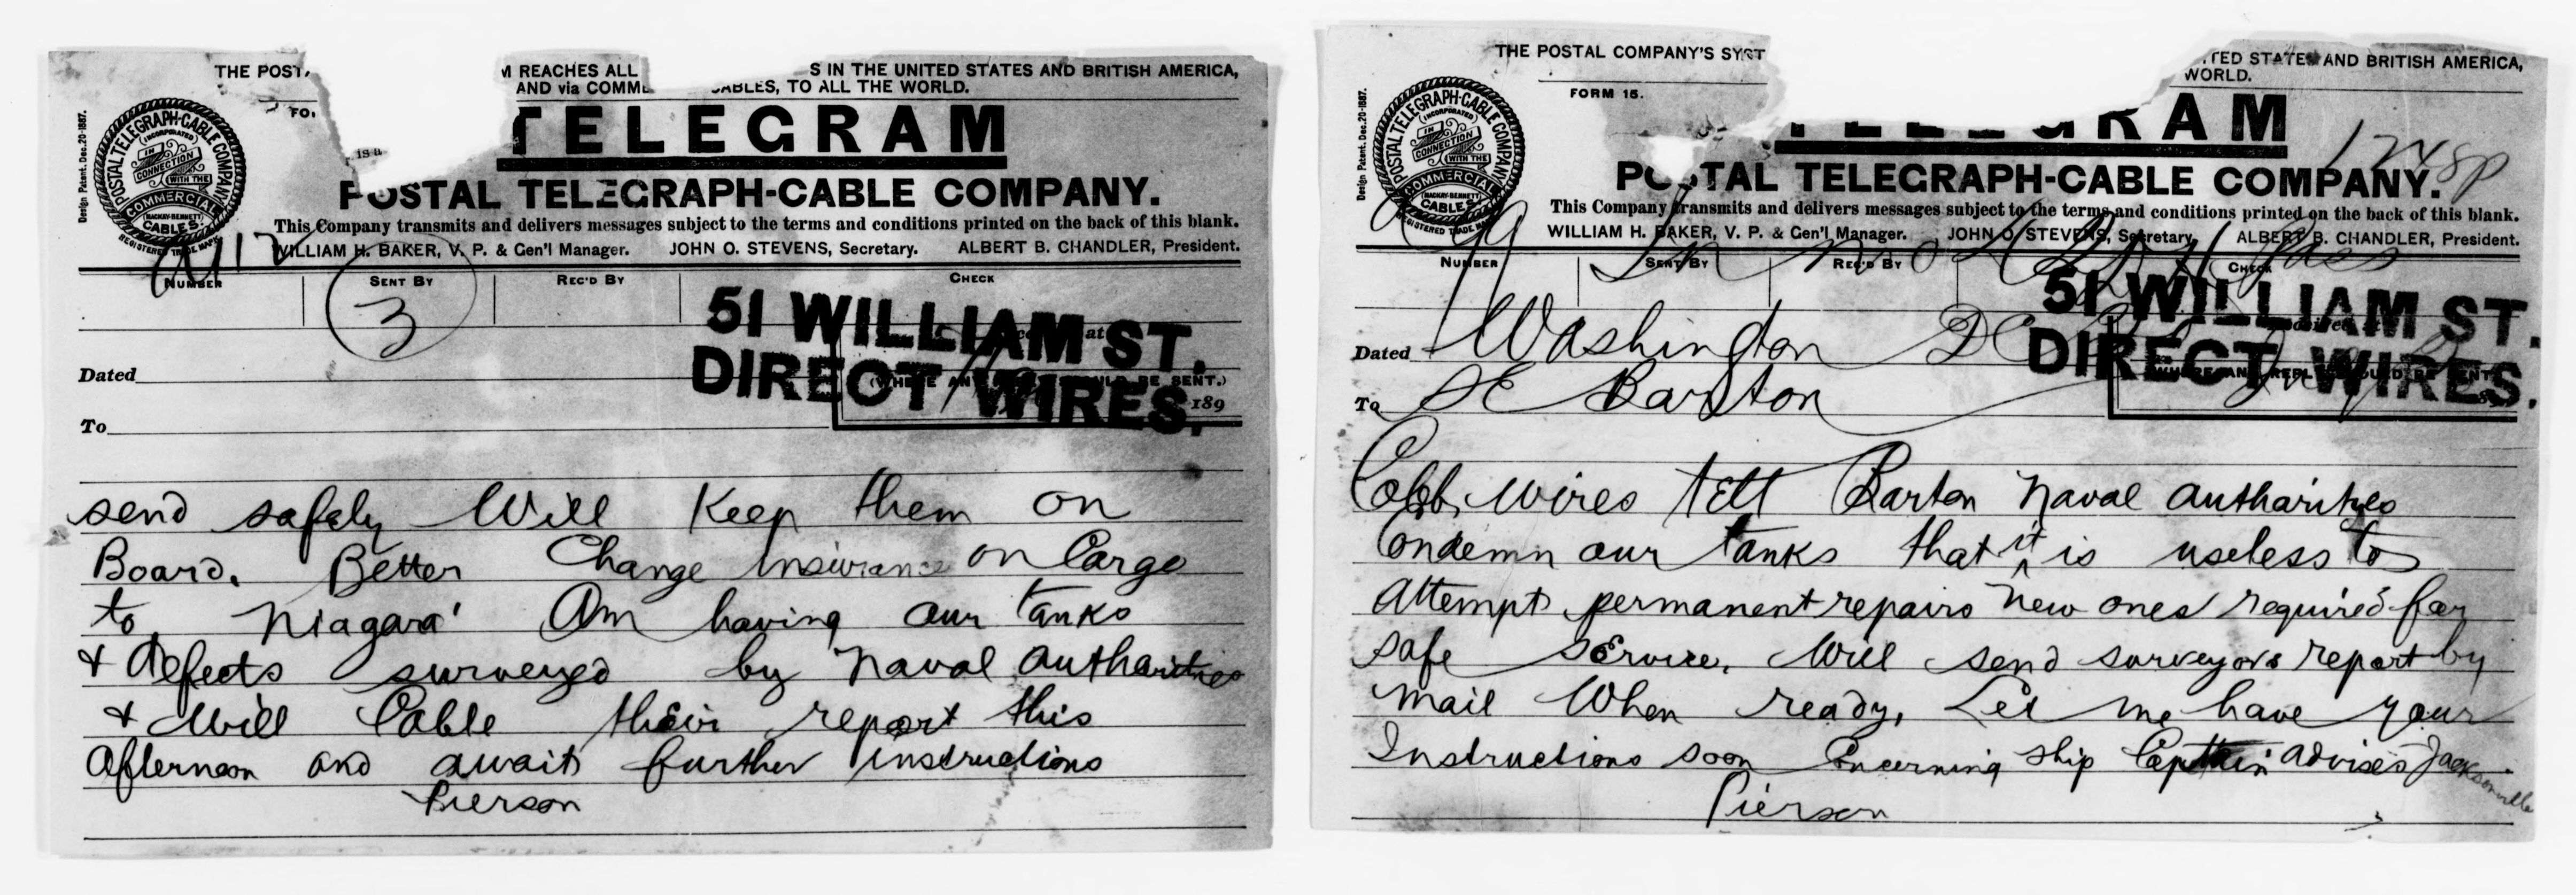 THE POST
M REACHES ALL
S IN THE UNITED STATES AND BRITISH AMERICA,
AND via COMM
CABLES, TO ALL THE WORLD.
FO
is a
TELEGRAM
POSTAL TELEGRAPH-CABLE COMPANY.
Design Patent. Dec. 20-1887.
POSTAL TELEGRAPH-CABLE COMPANY
(INCORPORATED)
IN
CONNECTION
WITH THE
COMMERCIAL
(MACKAY-BENNETT)
CABLES.
REGISTERED TRADE MARK
This Company transmits and delivers messages subject to the terms and conditions printed on the back of this blank.
WILLIAM H. BAKER, V. P. & Gen'l Manager. JOHN O. STEVENS, Secretary. ALBERT B. CHANDLER, President.
NUMBER SENT BY REC'D BY CHECK
3
51 WILLIAM ST.
DIRECT WIRES.
Dated
189
To
send safely Will Keep them on
Board. Better Change Insurance on Cargo
to Niagara' Am having our tanks
& defects surveyed by Naval authorities
& Will Cable their report this
afternoon and await further instructions
Pierson
THE POSTAL COMPANY'S SYST
TED STATES AND BRITISH AMERICA,
WORLD.
FORM 15.
TELEGRAM
1248P
POSTAL TELEGRAPH-CABLE COMPANY.
Design Patent. Dec. 20-1887.
POSTAL TELEGRAPH-CABLE COMPANY
(INCORPORATED)
IN
CONNECTION
WITH THE
COMMERCIAL
(MACKAY-BENNETT)
CABLES.
REGISTERED TRADE MARK
This Company transmits and delivers messages subject to the terms and conditions printed on the back of this blank.
WILLIAM H. BAKER, V. P. & Gen'l Manager. JOHN O. STEVENS, Secretary. ALBERT B. CHANDLER, President.
NUMBER SENT BY REC'D BY CHECK
51 WILLIAM ST.
DIRECT WIRES.
Dated Washington DC
To SE Barton
Cobb wires tell Barton Naval authorities
Condemn our tanks that it is useless to
attempt permanent repairs New ones required for
safe service. Will send surveyors report by
mail When ready, Let me have your
Instructions soon Concerning ship Captain advises Jacksonville
Pierson